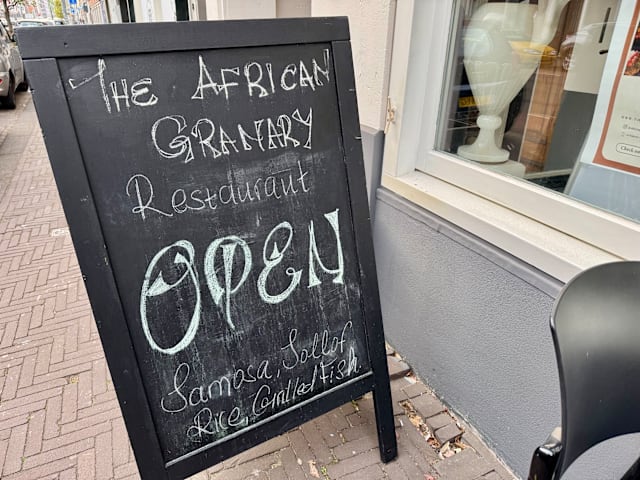 THE AFRICAN
GRANARY
Restaurant
OPEN
Samosa, Jollof
Rice, Grilled Fish.